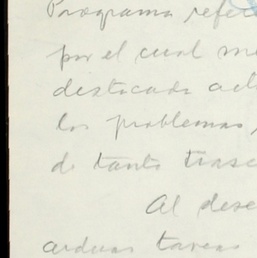 Programa refere
por el cual me
destacada act
los problemas,
de tanta trasc
Al dese
arduas tareas